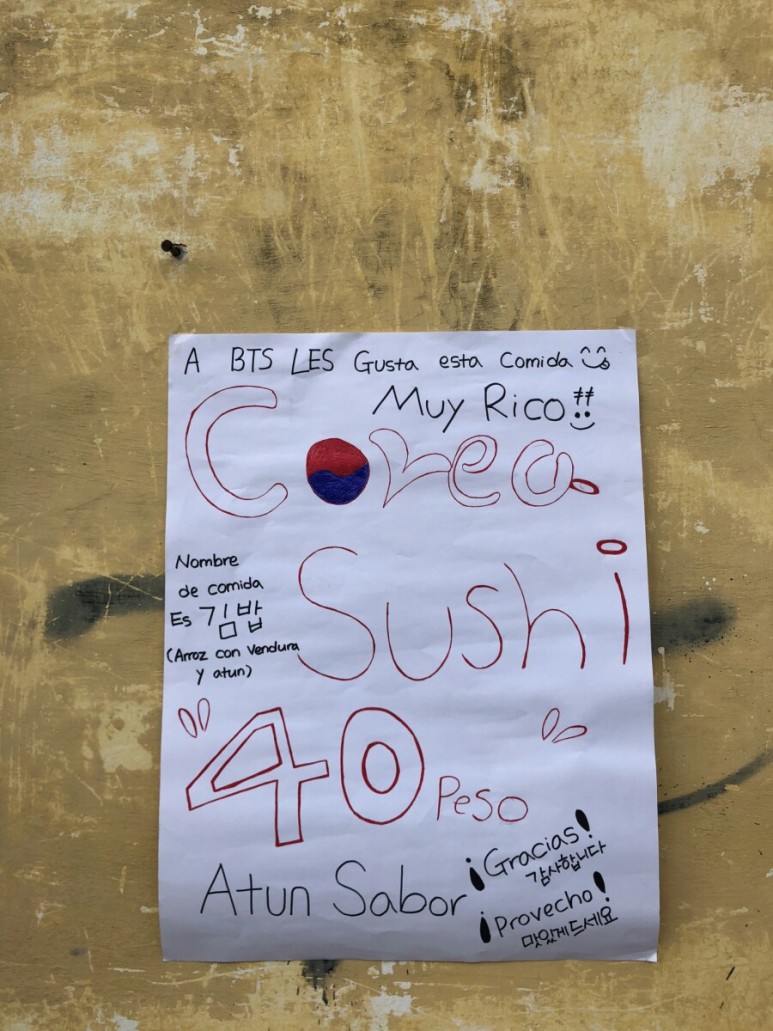 A BTS LES Gusta esta Comida
Muy Rico
Corea
Sushi
Nombre
de comida
Es 김밥
(Arroz con Vendura
y atun)
"40 Peso
Atun Sabor
¡Gracias!
감사합니다
¡Provecho!
맛있게드세요